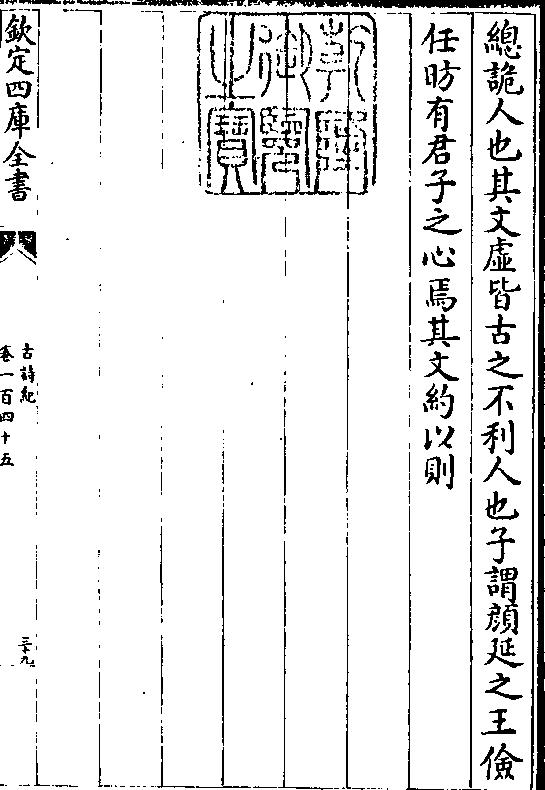 總詭人也其文虛皆古之不利人也子謂顔延之王儉
任昉有君子之心焉其文約以則
乾隆御覽之寶
欽定四庫全書
古詩紀
卷一百四十五
三十九